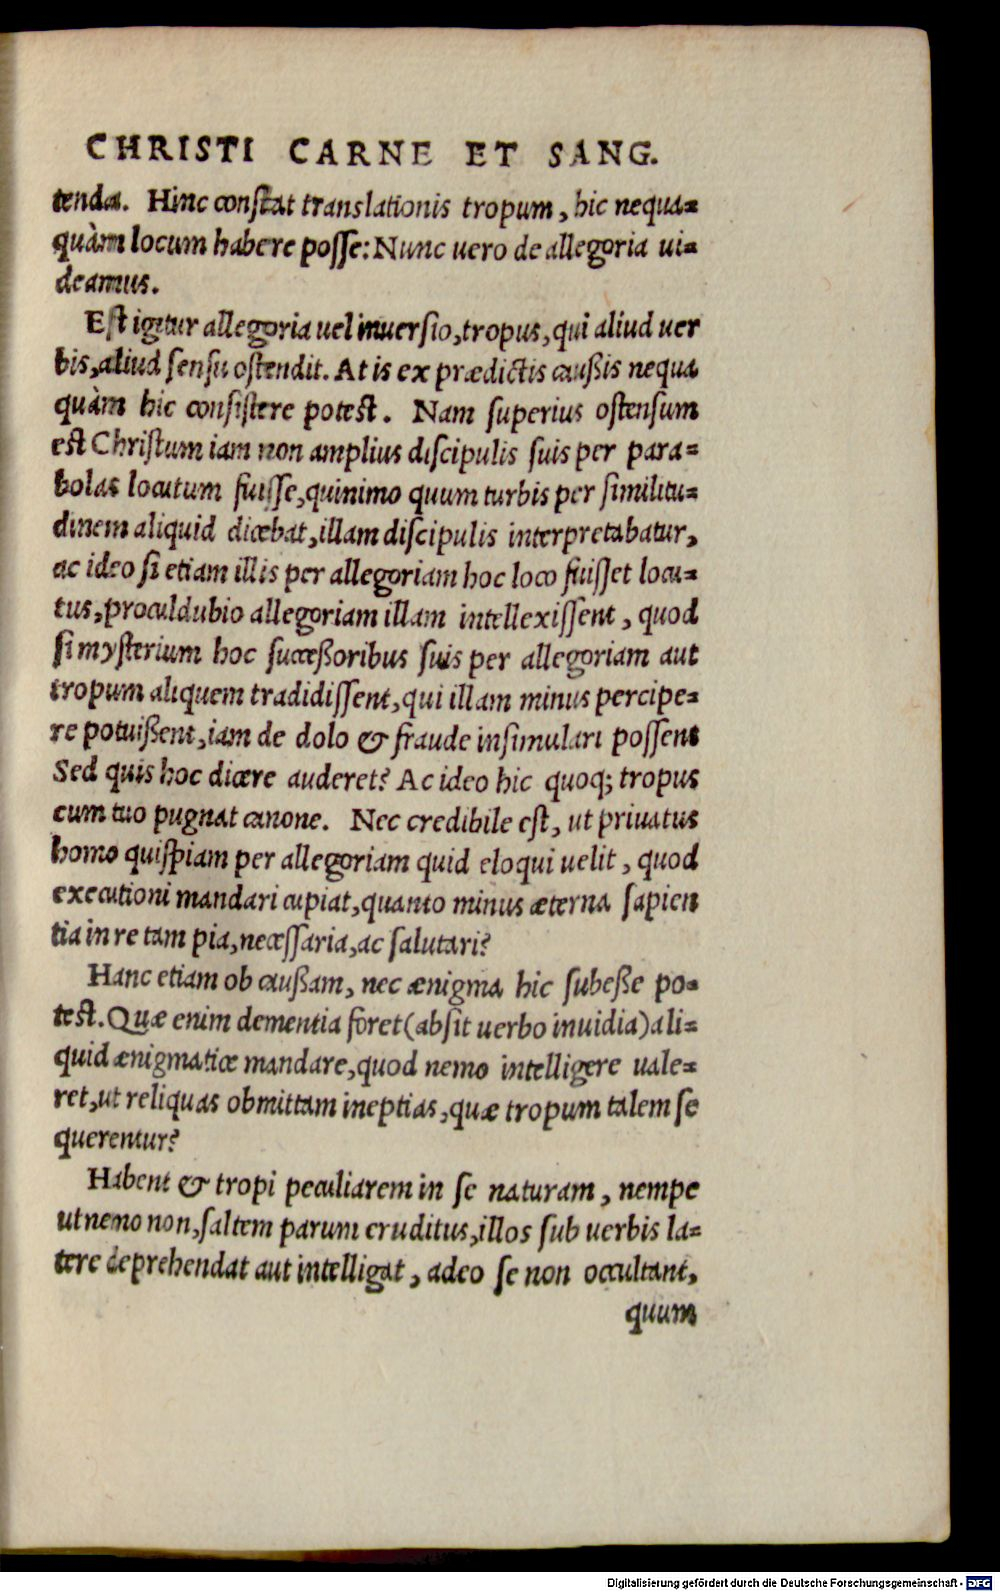 CHRISTI CARNE ET SANG.
tenda. Hinc constat translationis tropum, hic nequa-
quàm locum habere posse: Nunc uero de allegoria ui-
deamus.
Est igitur allegoria uel inuersio, tropus, qui aliud uer
bis, aliud sensu ostendit. At is ex prædictis caußis nequa
quàm hic consistere potest. Nam superius ostensum
est Christum iam non amplius discipulis suis per para-
bolas locutum fuisse, quinimo quum turbis per similitu-
dinem aliquid dicebat, illam discipulis interpretabatur,
ac ideo si etiam illis per allegoriam hoc loco fuisset locu-
tus, proculdubio allegoriam illam intellexissent, quod
si mysterium hoc succeßoribus suis per allegoriam aut
tropum aliquem tradidissent, qui illam minus percipe-
re potuißent, iam de dolo & fraude insimulari possent
Sed quis hoc dicere auderet? Ac ideo hic quoq; tropus
cum tuo pugnat canone. Nec credibile est, ut priuatus
homo quispiam per allegoriam quid eloqui uelit, quod
executioni mandari cupiat, quanto minus æterna sapien
tia in re tam pia, necessaria, ac salutari?
Hanc etiam ob caußam, nec ænigma hic subeße po-
test. Quæ enim dementia foret (absit uerbo inuidia) ali-
quid ænigmatice mandare, quod nemo intelligere uale-
ret, ut reliquas obmittam ineptias, quæ tropum talem se
querentur?
Habent & tropi peculiarem in se naturam, nempe
ut nemo non, saltem parum eruditus, illos sub uerbis la-
tere deprehendat aut intelligat, adeo se non occultant,
quum
Digitalisierung gefördert durch die Deutsche Forschungsgemeinschaft - DFG